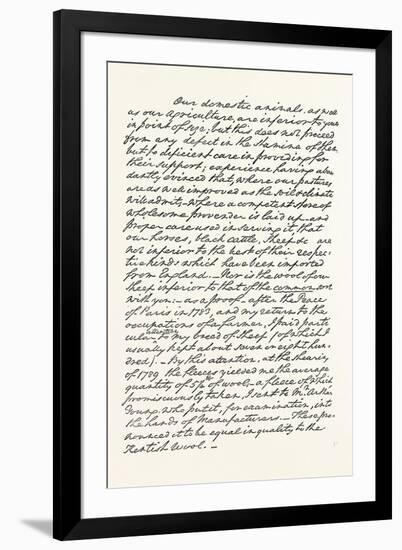 Our domestic animals, as well
as our agriculture, are inferior to yours
in point of size; but this does not proceed
from any defect in the stamina of them
but to deficient care in providing for
their support; experience having abun
dantly evinced that, where our pastures
are as well improved as the soil & climate
will admit, – where a competent store of
wholesome provender is laid up and
proper care used in serving it, that
our horses, black cattle, Sheep &c are
not inferior to the best of their respec–
tive kinds which have been imported
from England. – Nor is the wool of our
sheep inferior to that of the common sort
with you: – as a proof – after the Peace
of Paris in 1783, and my return to the
occupations of a farmer, I paid parti
cular attention to my breed of sheep (of which I
usually kept about seven or eight hun–
dred). – By this attention, at the shearing
of 1789, the fleeces yielded me the average
quantity of 5¼ lb of wool – a fleece of which
promiscuously taken, I sent to Mr Arthur
Young, who put it, for examination, into
the hands of Manufacturers. – These pro
nounced it to be equal in quality to the
Kentish Wool. –